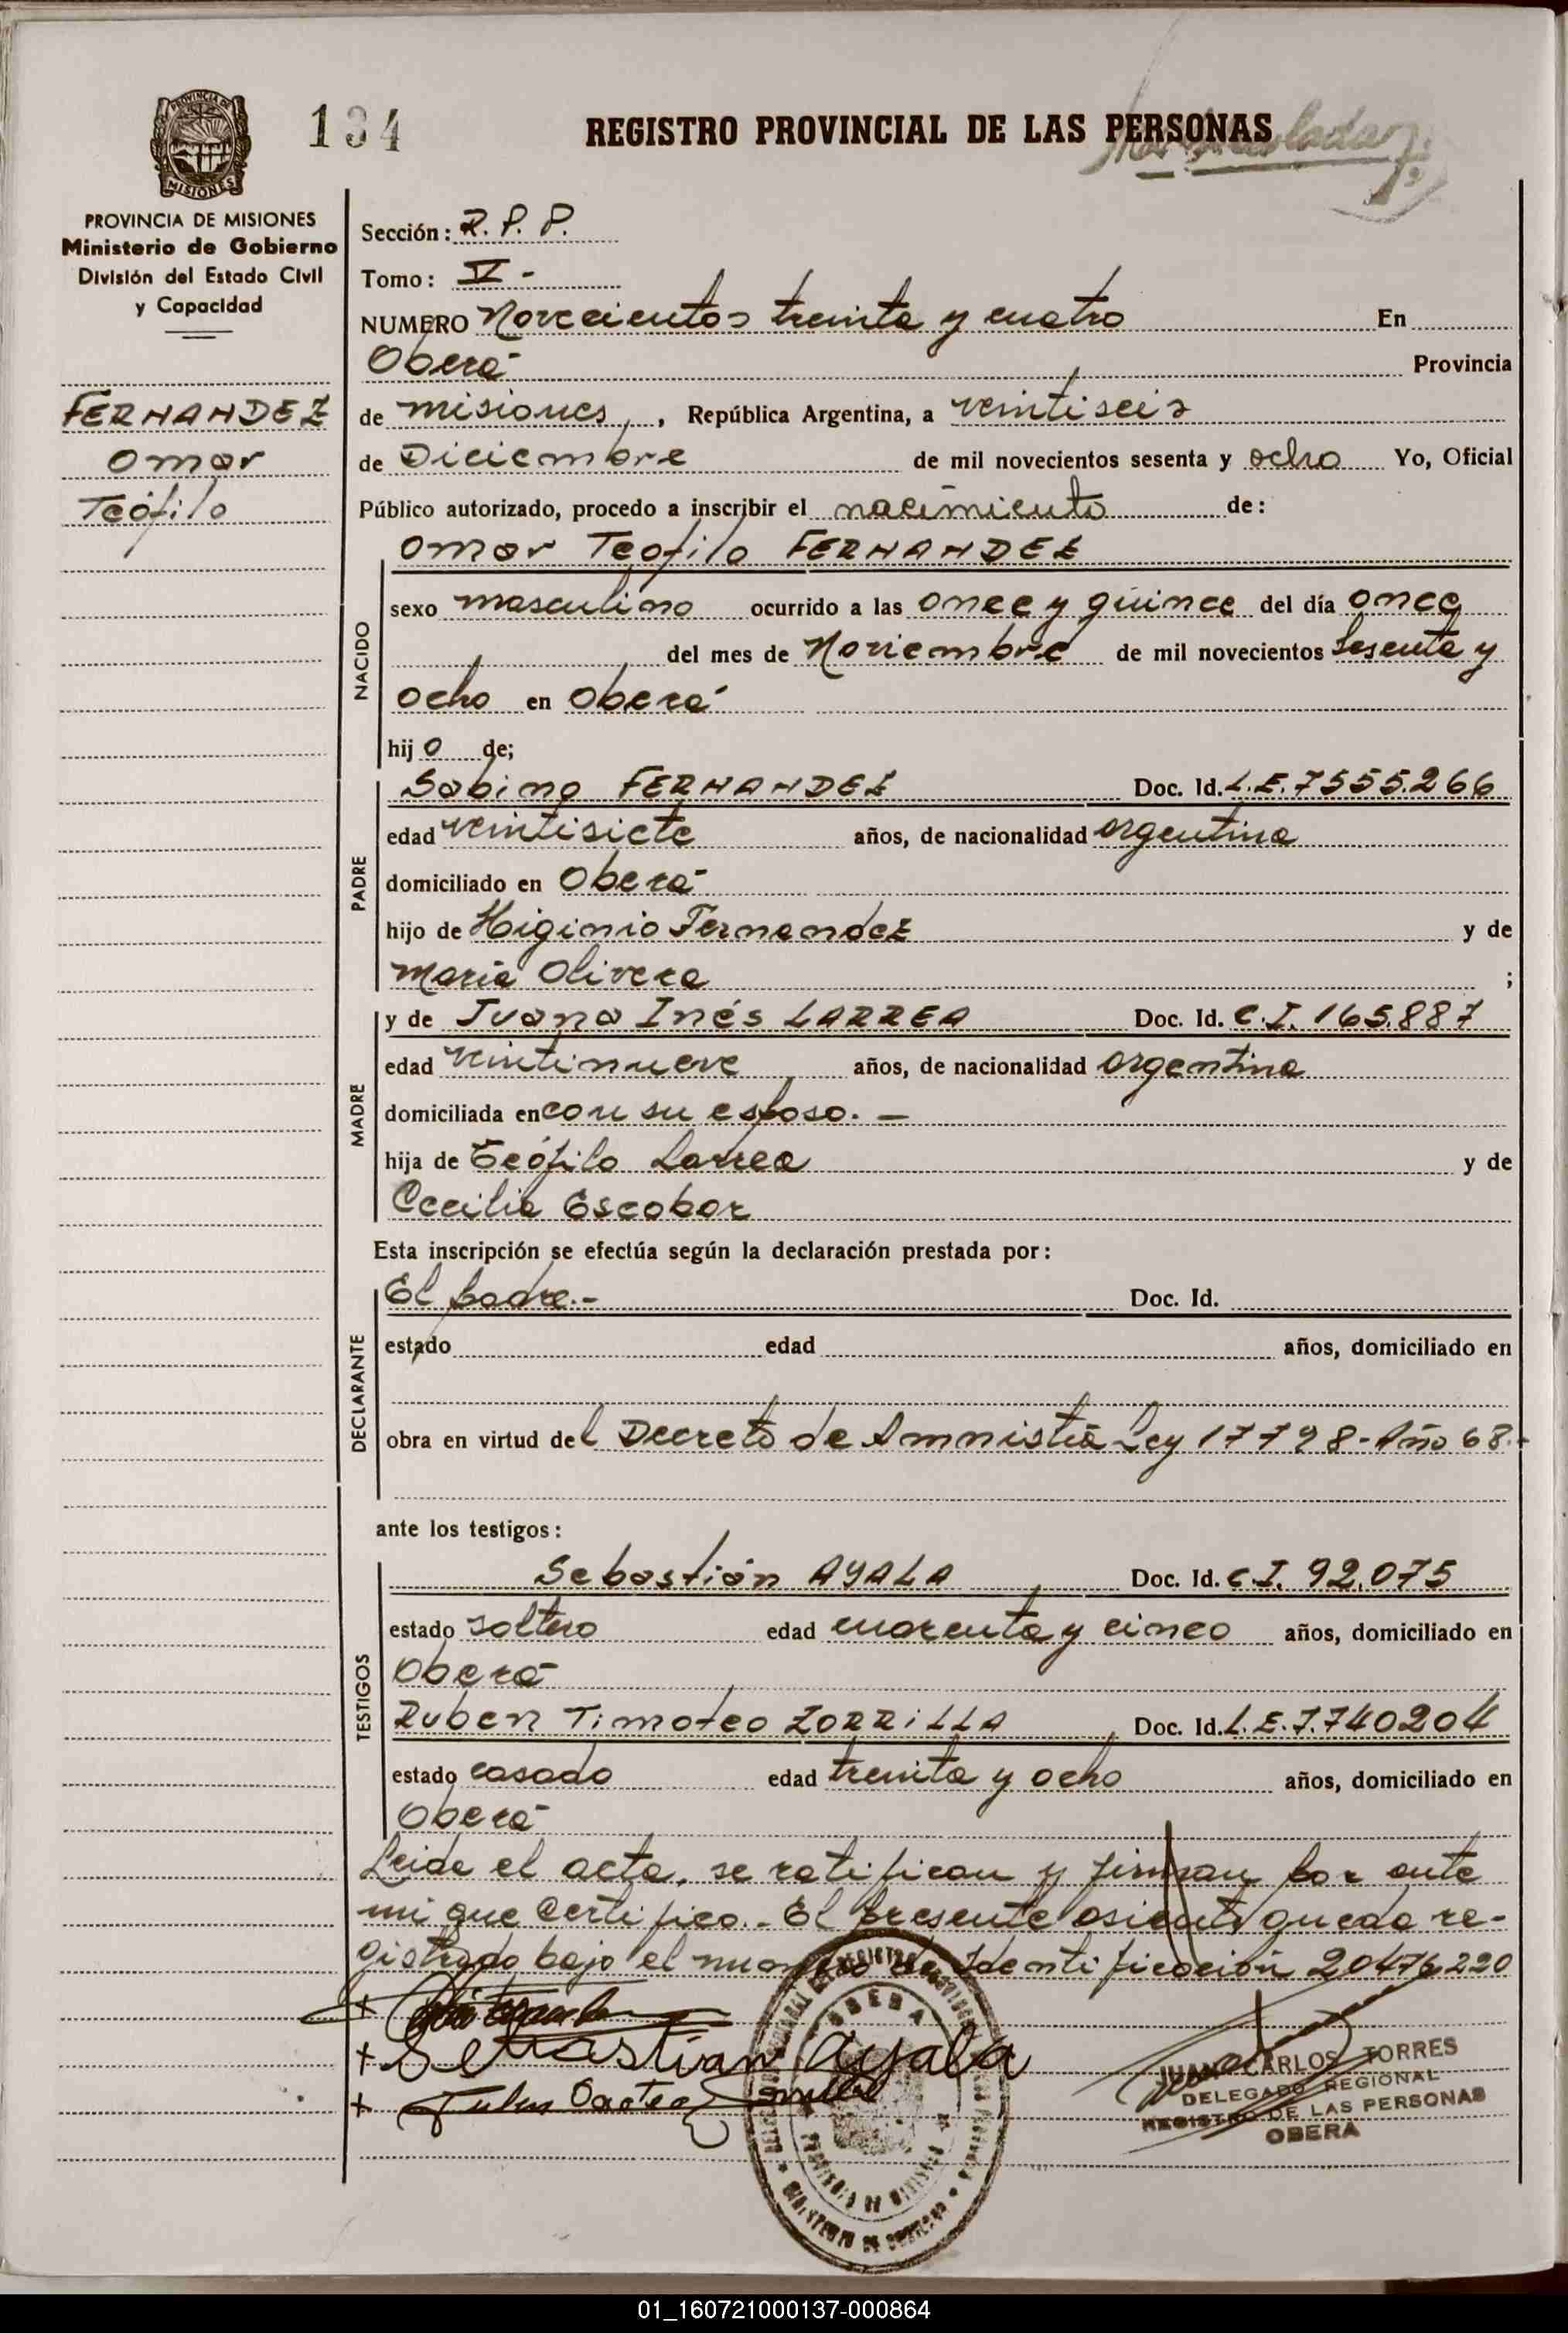 PROVINCIA DE
MISIONES
134
REGISTRO PROVINCIAL DE LAS PERSONAS
PROVINCIA DE MISIONES
Ministerio de Gobierno
División del Estado Civil
y Capacidad
FERNANDEZ
Omar
Teófilo
Sección: R. P. P.
Tomo: V -
NUMERO Novecientos treinta y cuatro En
Oberá Provincia
de misiones, República Argentina, a veintiseis
de Diciembre de mil novecientos sesenta y ocho Yo, Oficial
Público autorizado, procedo a inscribir el nacimiento de:
NACIDO
Omar Teofilo FERNANDEZ
sexo masculino ocurrido a las once y quince del día once
del mes de Noviembre de mil novecientos sesenta y
ocho en Oberá
hijo de;
PADRE
Sabino FERNANDEZ Doc. Id. L.E. 7555.266
edad veintisiete años, de nacionalidad argentina
domiciliado en Oberá
hijo de Higinio Fernandez y de
Maria Olivera ;
MADRE
y de Juana Inés LARREA Doc. Id. C.I. 165.887
edad veintinueve años, de nacionalidad argentina
domiciliada en con su esposo. -
hija de Teófilo Larrea y de
Cecilia Escobar
Esta inscripción se efectúa según la declaración prestada por:
DECLARANTE
El padre.- Doc. Id.
estado edad años, domiciliado en
obra en virtud del Decreto de Amnistía Ley 17798 - Año 68.-
ante los testigos:
TESTIGOS
Sebastián AYALA Doc. Id. C.I. 92.075
estado soltero edad cuarenta y cinco años, domiciliado en
Oberá
Ruben Timoteo ZORRILLA Doc. Id. L.E. 7.740204
estado casado edad treinta y ocho años, domiciliado en
Oberá
Leida el acta, se ratifican y firman por ante
mi que certifico.- El presente asiento queda re-
gistrado bajo el numero de Identificación 20476220
+
+ Sebastian Ayala
+
OBERA
JUAN CARLOS TORRES
DELEGADO REGIONAL
REGISTRO DE LAS PERSONAS
OBERA
01_160721000137-000864